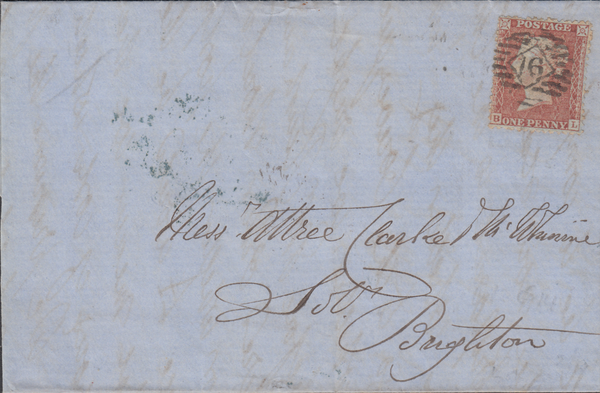 POSTAGE
16
B ONE PENNY L
Mess<sup>rs</sup> Attree Clarke & McWhinnie
Sol<sup>rs</sup>
Brighton